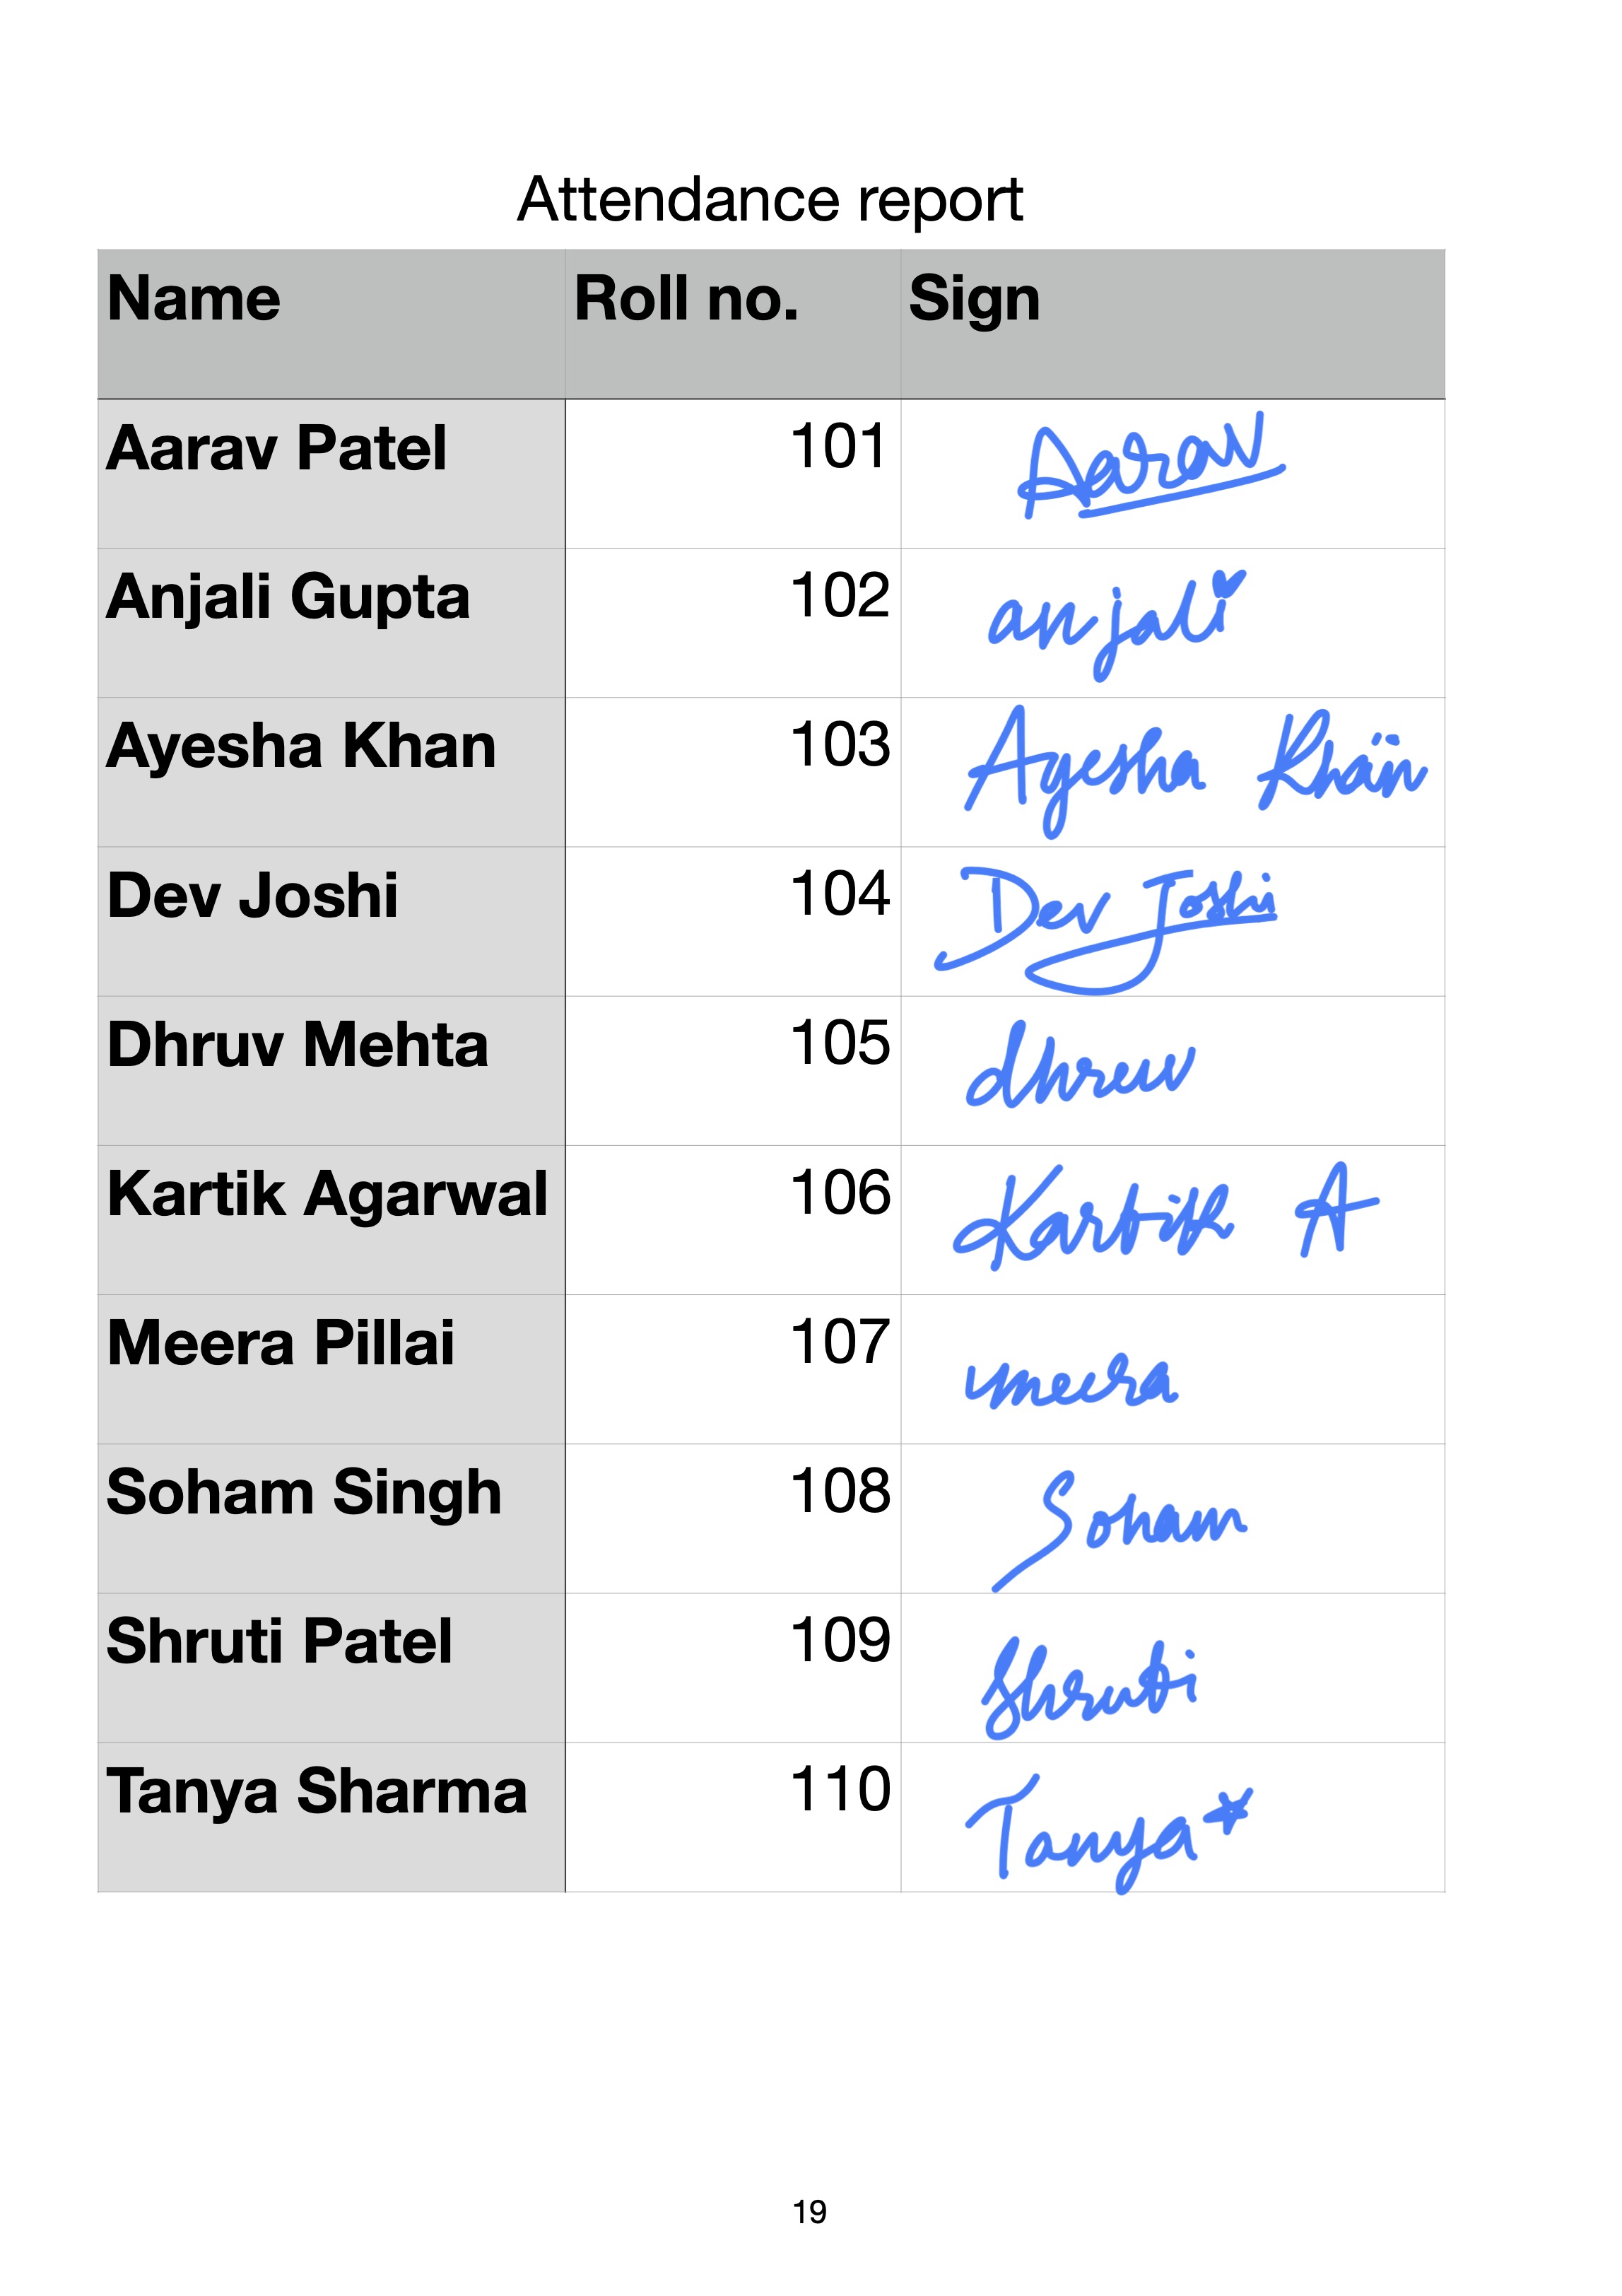 Attendance report
Name Roll no. Sign
Aarav Patel 101 Aarav
Anjali Gupta 102 anjali
Ayesha Khan 103 Ayesha Khan
Dev Joshi 104 Dev Joshi
Dhruv Mehta 105 dhruv
Kartik Agarwal 106 Kartik A
Meera Pillai 107 meera
Soham Singh 108 Soham
Shruti Patel 109 Shruti
Tanya Sharma 110 Tanya*
19